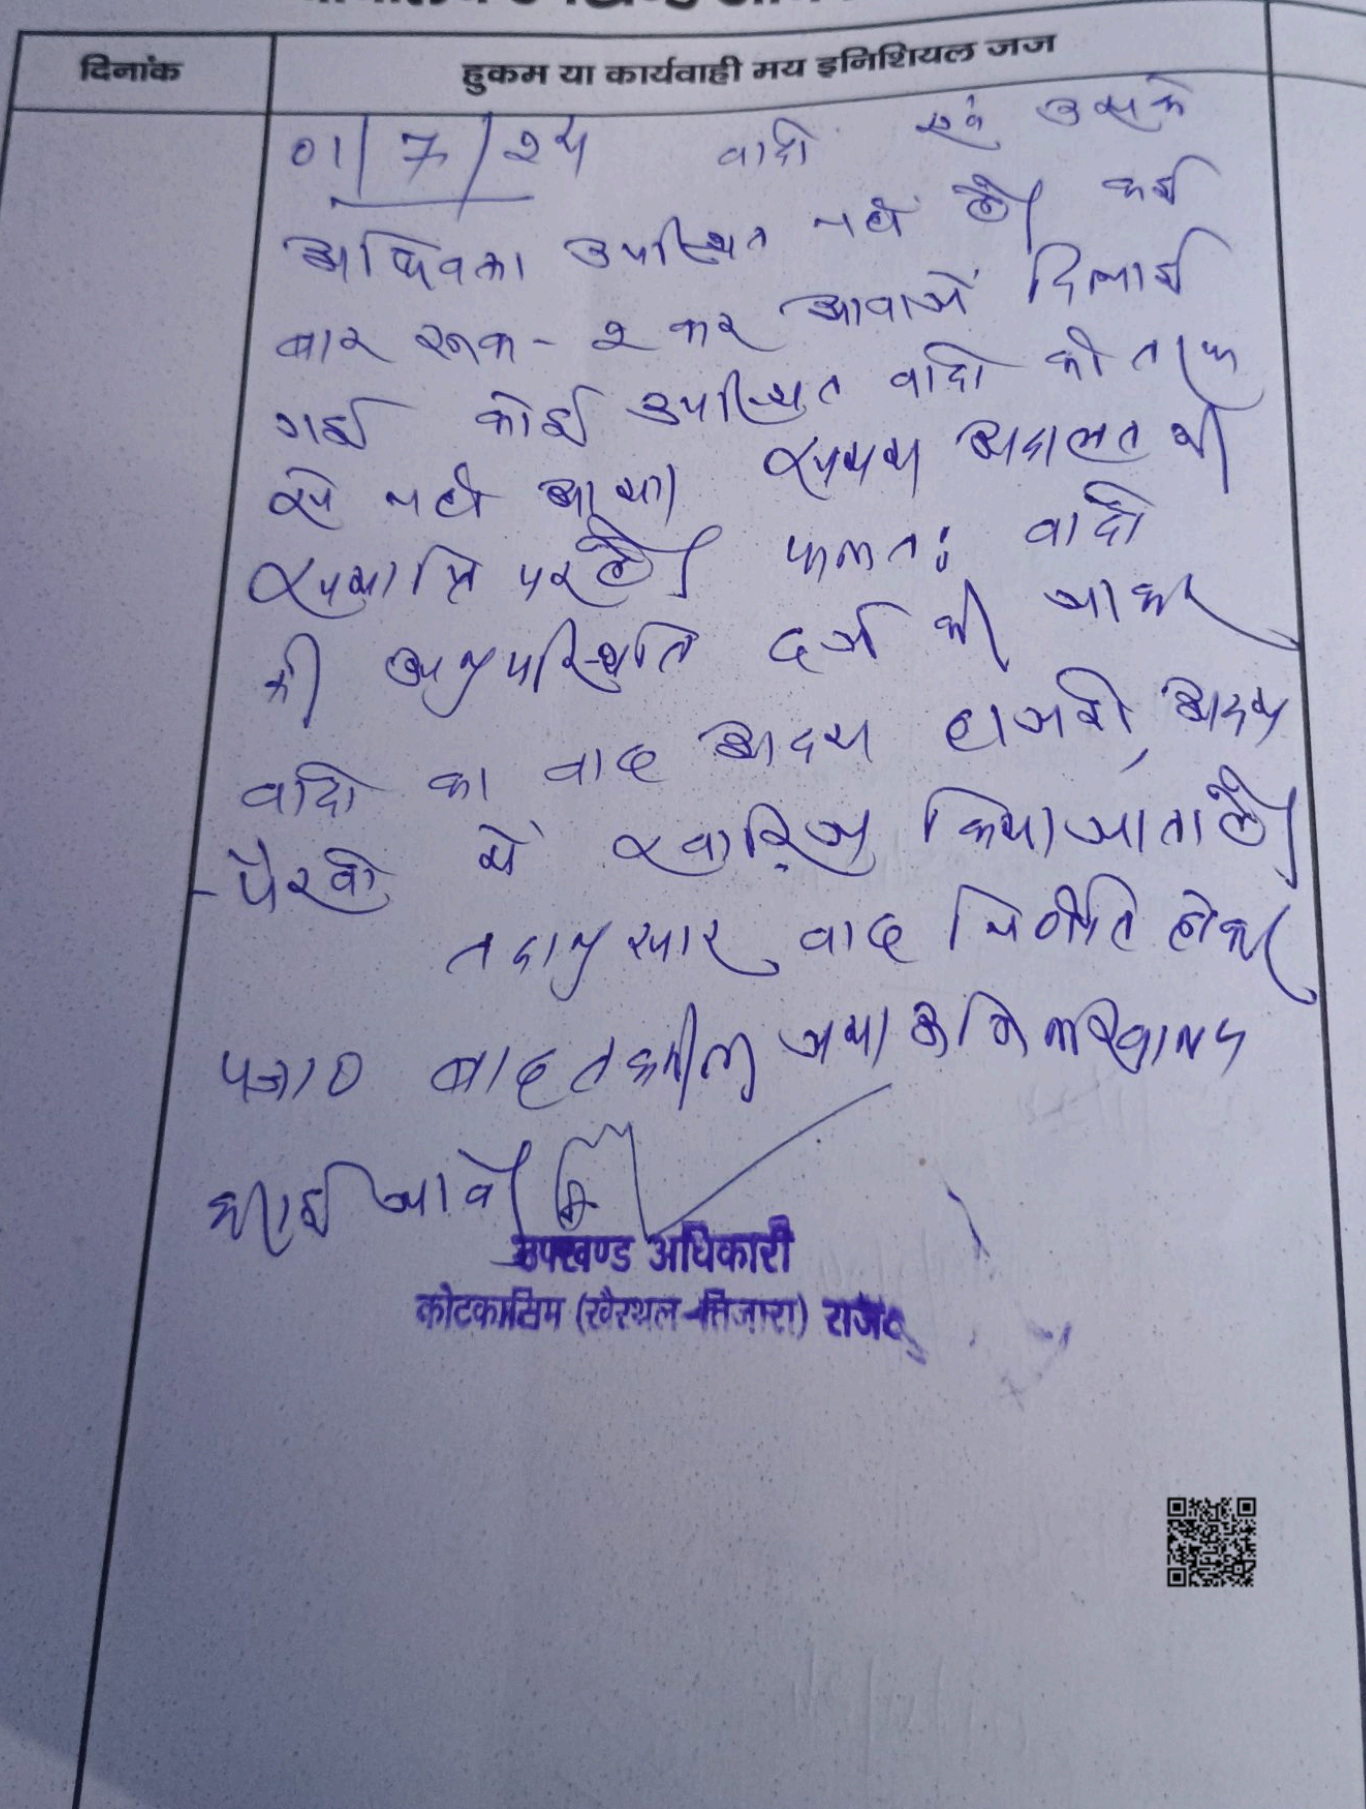 दिनांक
हुकम या कार्यवाही मय इनिशियल जज
01/7/24 वादी एवं उसके
अधिवक्ता उपस्थित नहीं है। कई
बार रूक-२ कर आवाजें दिलाई
गई कोई उपस्थित वादी की तरफ
से नहीं आया। समय अदालत भी
समाप्ति पर है। फलतः वादी
की अनुपस्थिति दर्ज की जाकर
वादी का वाद अदम हाजरी, अदम
पैरवी में खारिज किया जाता है।
तदानुसार वाद निर्णीत होकर
पत्रा० बाद तकमील जमा
कराई जावे।
उपखण्ड अधिकारी
कोटकासिम (खैरथल-तिजारा) राज०